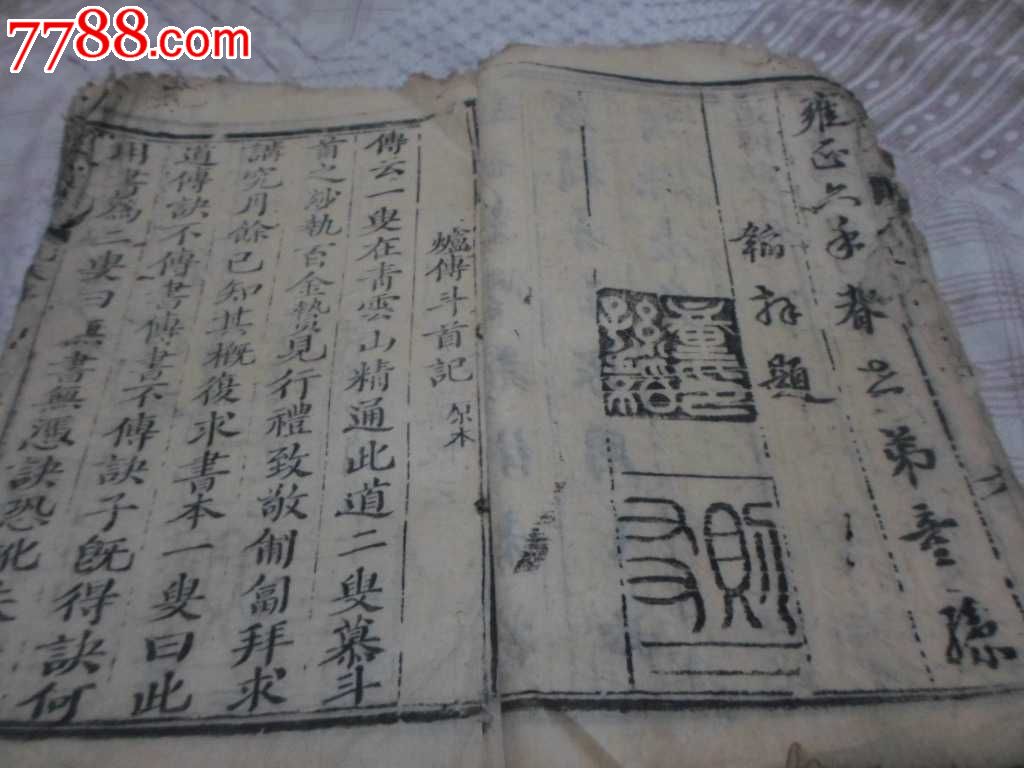 7788.com
雍正六年春之弟童
拜題
爐傳斗首記 原本
傳云一叟在青雲山精通此道二叟慕斗
首之妙執百金贄見行禮致敬匍匐拜求
講究月餘已知其概復求書本一叟曰此
道傳訣不傳書傳書不傳訣子旣得訣何
用書爲二叟曰無書無憑訣恐